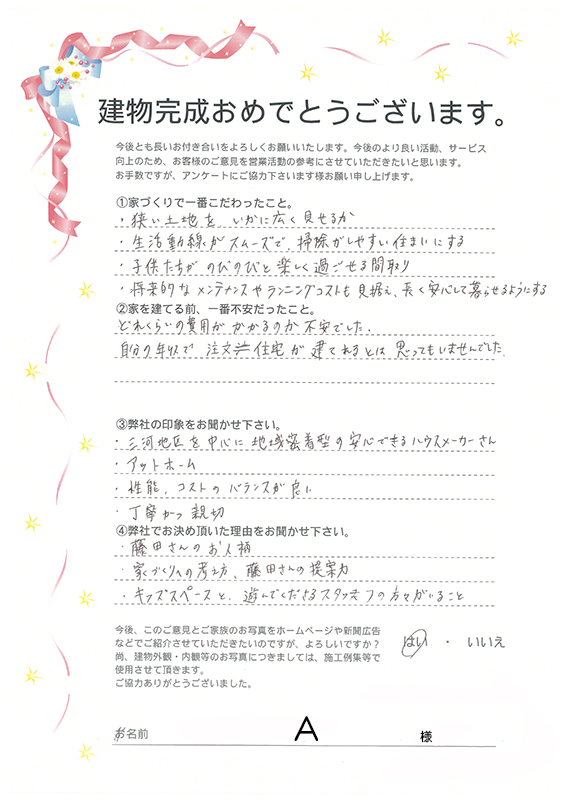 建物完成おめでとうございます。
今後とも長いお付き合いをよろしくお願いいたします。今後のより良い活動、サービス
向上のため、お客様のご意見を営業活動の参考にさせていただきたいと思います。
お手数ですが、アンケートにご協力下さいます様お願い申し上げます。
①家づくりで一番こだわったこと。
・狭い土地を、いかに広く見せるか
・生活動線がスムーズで、掃除がしやすい住まいにする
・子供たちが のびのびと楽しく過ごせる間取り
・将来的なメンテナンスやランニングコストも見据え、長く安心して暮らせるようにする
②家を建てる前、一番不安だったこと。
どれくらいの費用がかかるのか不安でした。
自分の年収で 注文住宅が建てれるとは思ってもいませんでした。
③弊社の印象をお聞かせ下さい。
・三河地区を中心に地域密着型の安心できるハウスメーカーさん
・アットホーム
・性能、コストのバランスが良い
・丁寧かつ親切
④弊社でお決め頂いた理由をお聞かせ下さい。
・藤田さんのお人柄
・家づくりへの考え方、藤田さんの提案力
・キッズスペースと、遊んでくださるスタッフの方々がいること
今後、このご意見とご家族のお写真をホームページや新聞広告
などでご紹介させていただきたいのですが、よろしいですか？
はい ・ いいえ
尚、建物外観・内観等のお写真につきましては、施工例集等で
使用させて頂きます。
ご協力ありがとうございました。
お名前 A 様